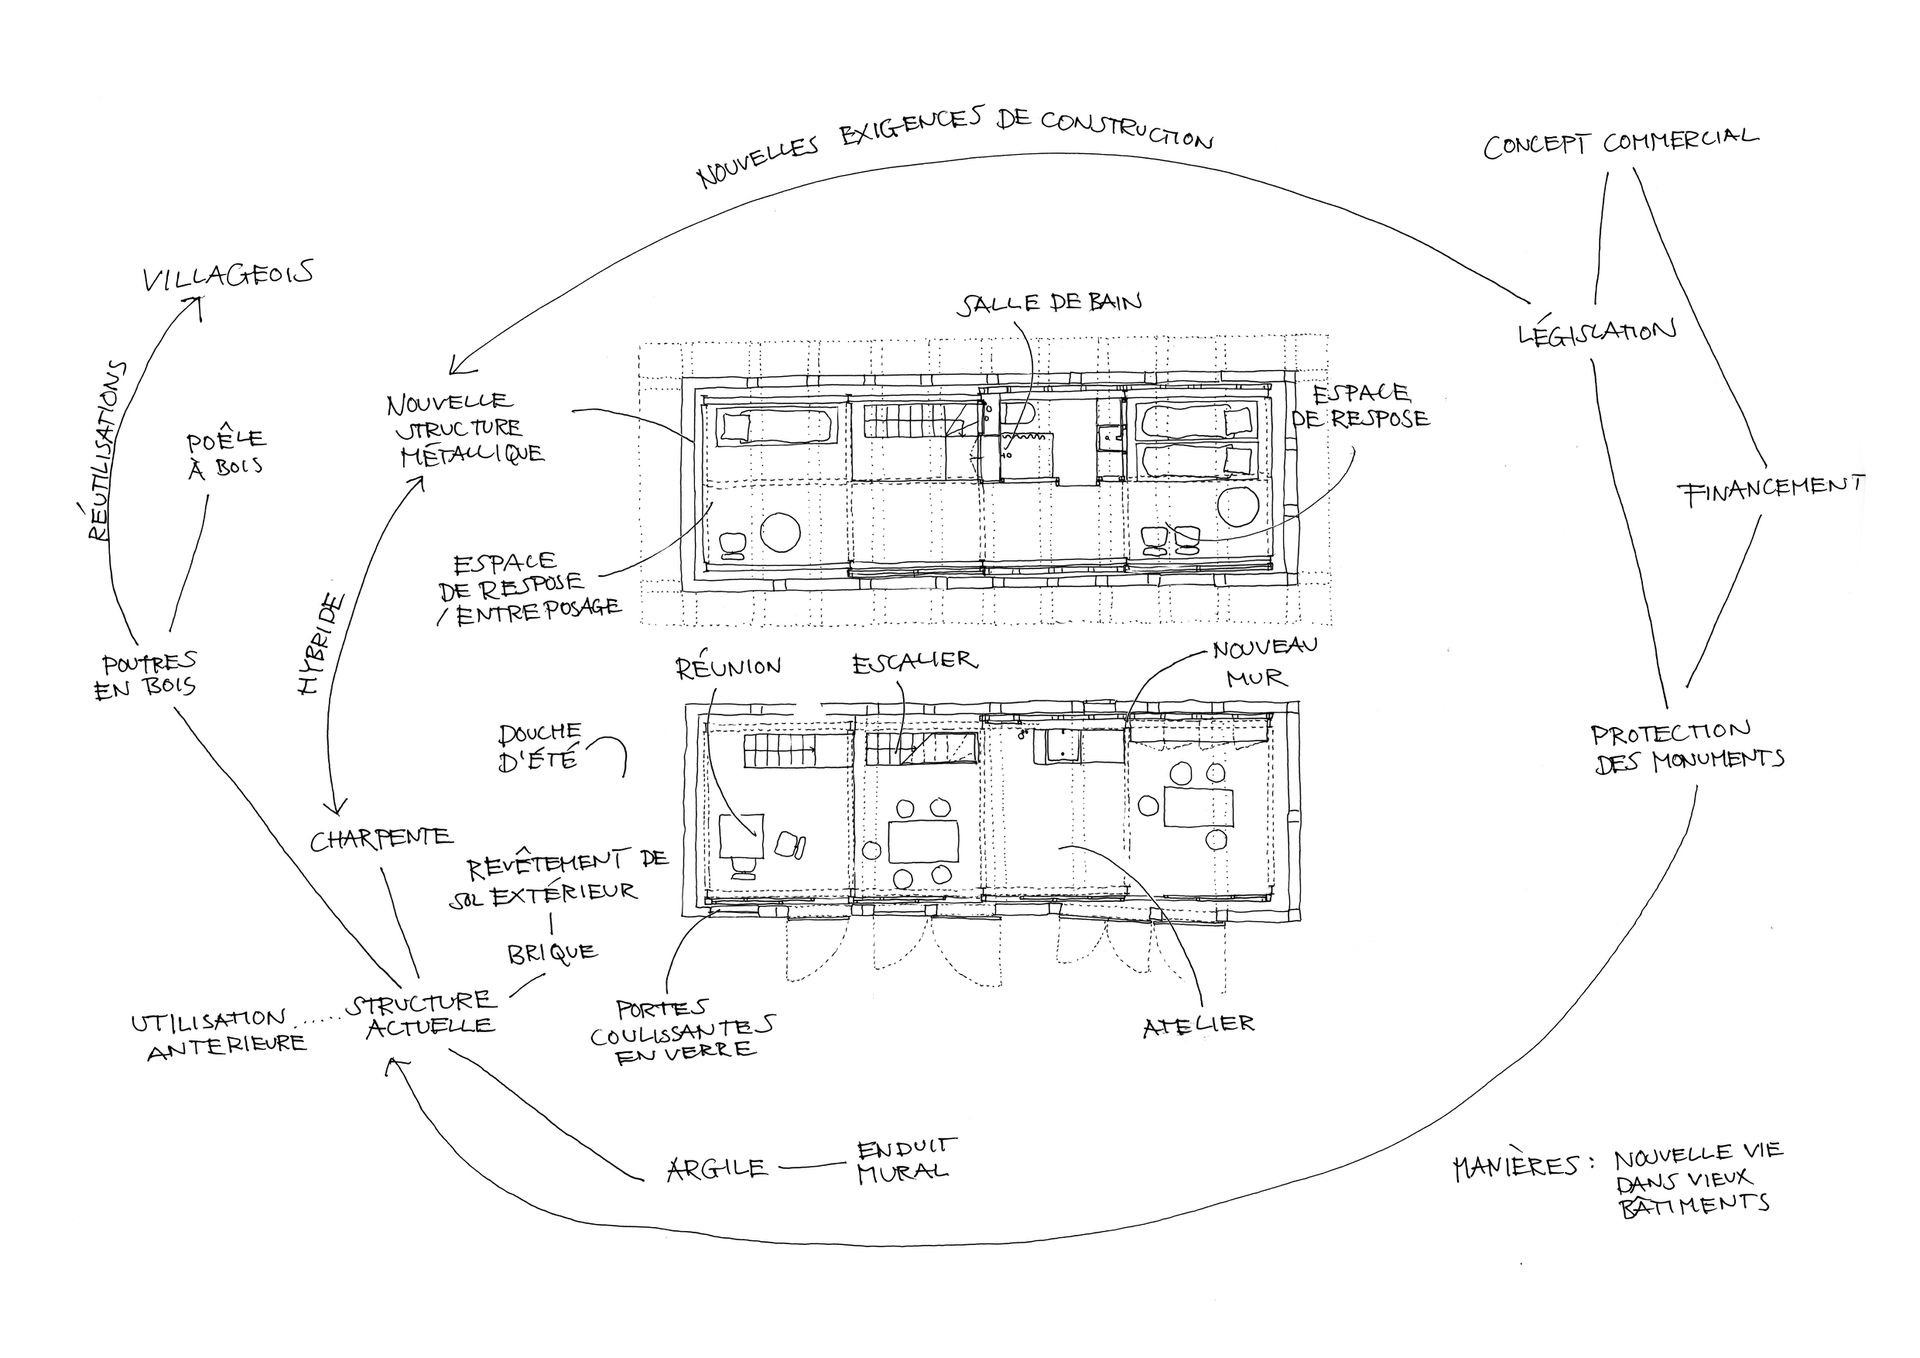 NOUVELLES EXIGENCES DE CONSTRUCTION
CONCEPT COMMERCIAL
VILLAGEOIS
SALLE DE BAIN
LÉGISLATION
RÉUTILISATIONS
POÊLE
À BOIS
NOUVELLE
STRUCTURE
MÉTALLIQUE
ESPACE
DE RESPOSE
FINANCEMENT
ESPACE
DE RESPOSE
/ ENTREPOSAGE
HYBRIDE
POUTRES
EN BOIS
RÉUNION
ESCALIER
NOUVEAU
MUR
DOUCHE
D'ÉTÉ
PROTECTION
DES MONUMENTS
CHARPENTE
REVÊTEMENT DE
SOL EXTÉRIEUR
BRIQUE
UTILISATION
ANTERIEURE
STRUCTURE
ACTUELLE
PORTES
COULISSANTES
EN VERRE
ATELIER
ARGILE
ENDUIT
MURAL
MANIÈRES : NOUVELLE VIE
DANS VIEUX
BÂTIMENTS